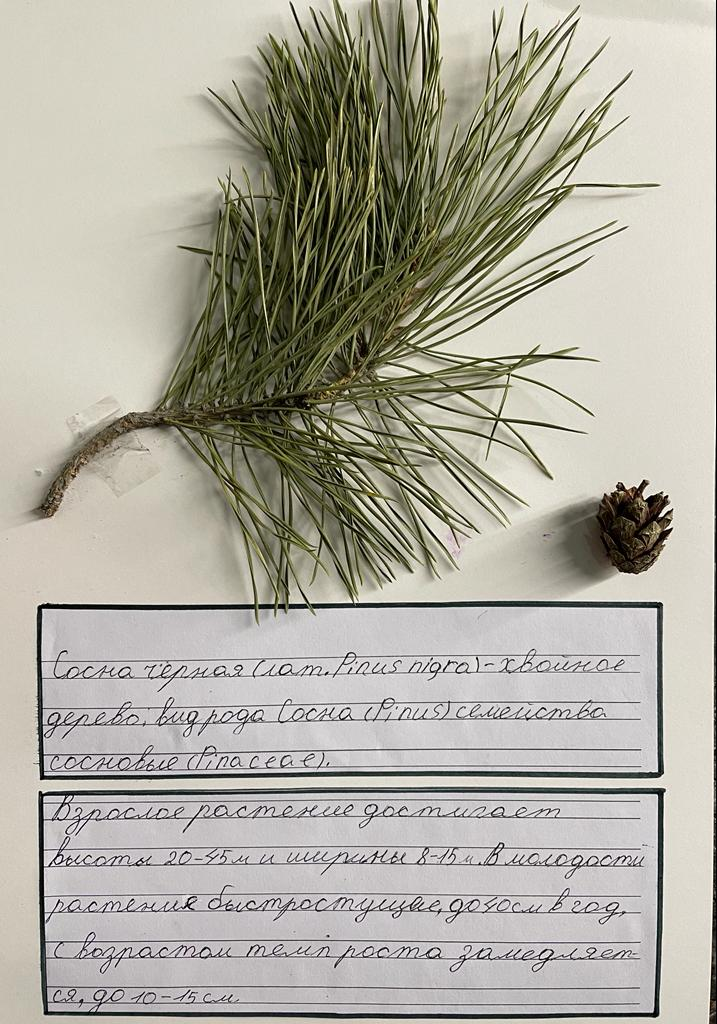 Сосна чёрная (лат. Pinus nigra) - хвойное
дерево, вид рода Сосна (Pinus) семейства
сосновые (Pinaceae).
Взрослое растение достигает
высоты 20-45 м и ширины 8-15 м. В молодости
растения быстростущие, до 40 см в год,
с возрастом темп роста замедляет-
ся, до 10-15 см.